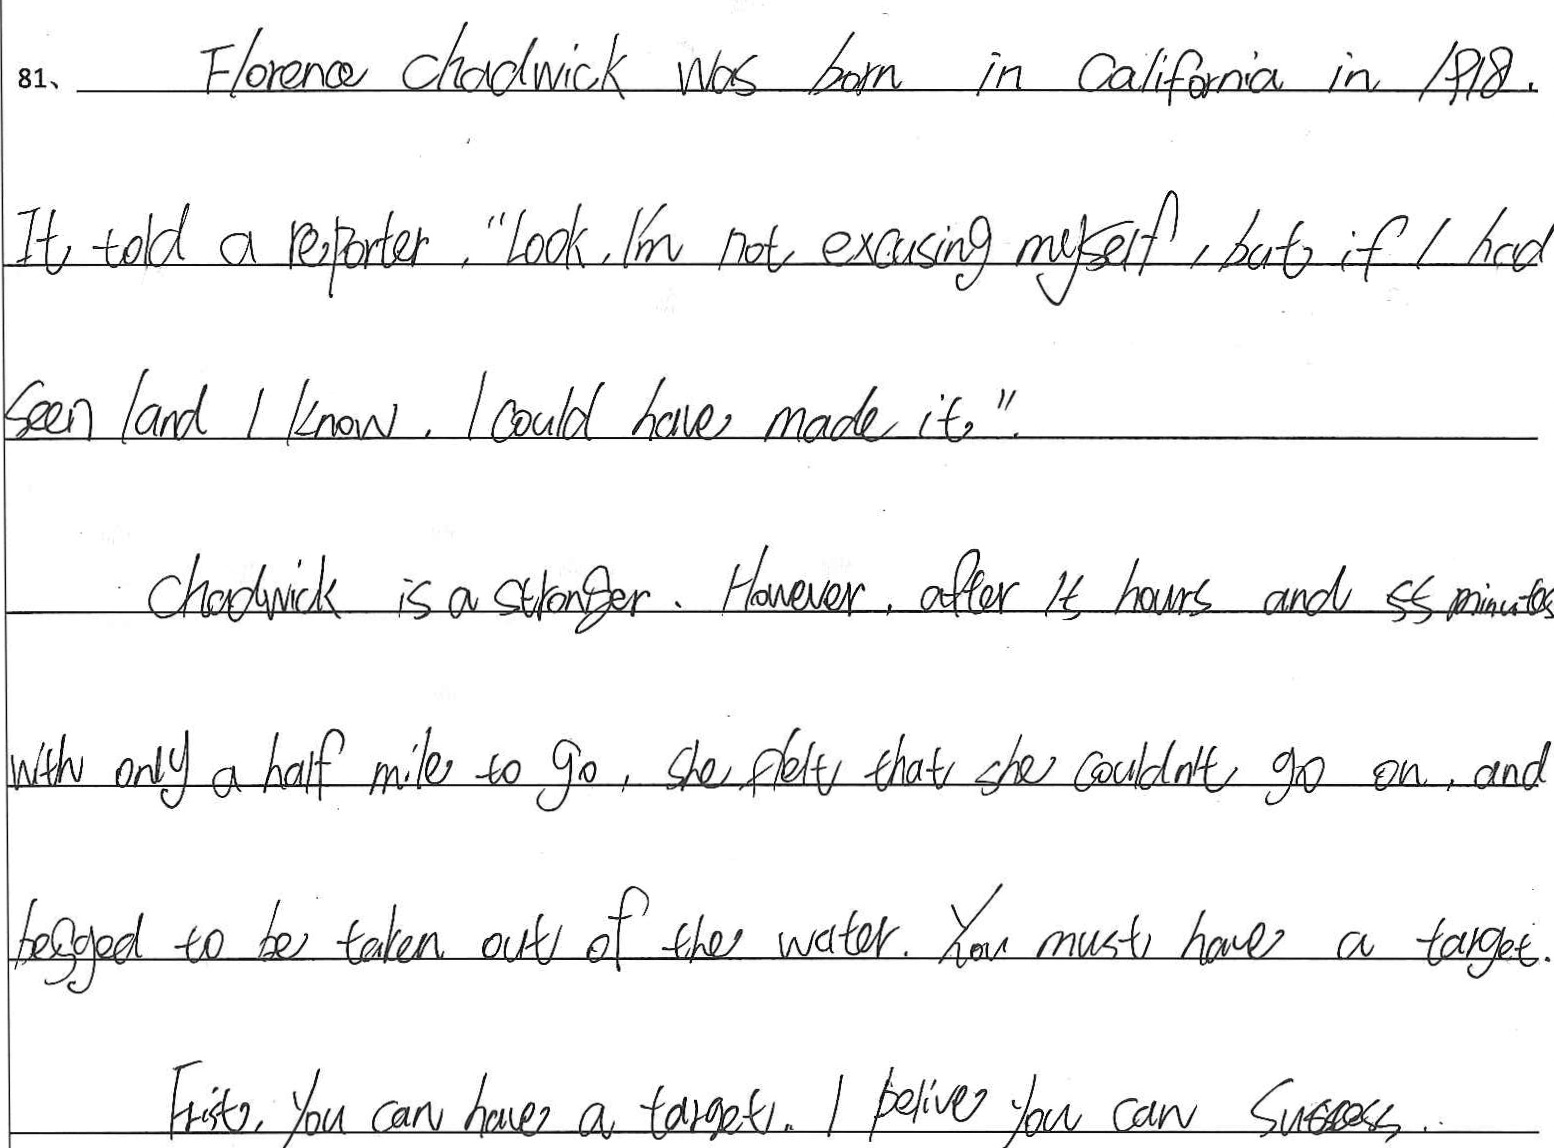 81、 Florence Chadwick was born in California in 1918.
It told a reporter, "Look, I'm not excusing myself, but if I had
seen land I know, I could have made it."
Chadwick is a stronger. However, after 15 hours and 55 minutes
with only a half mile to go, she felt that she couldn't go on, and
begged to be taken out of the water. You must have a target.
Frist, you can have a target. I belive you can success.